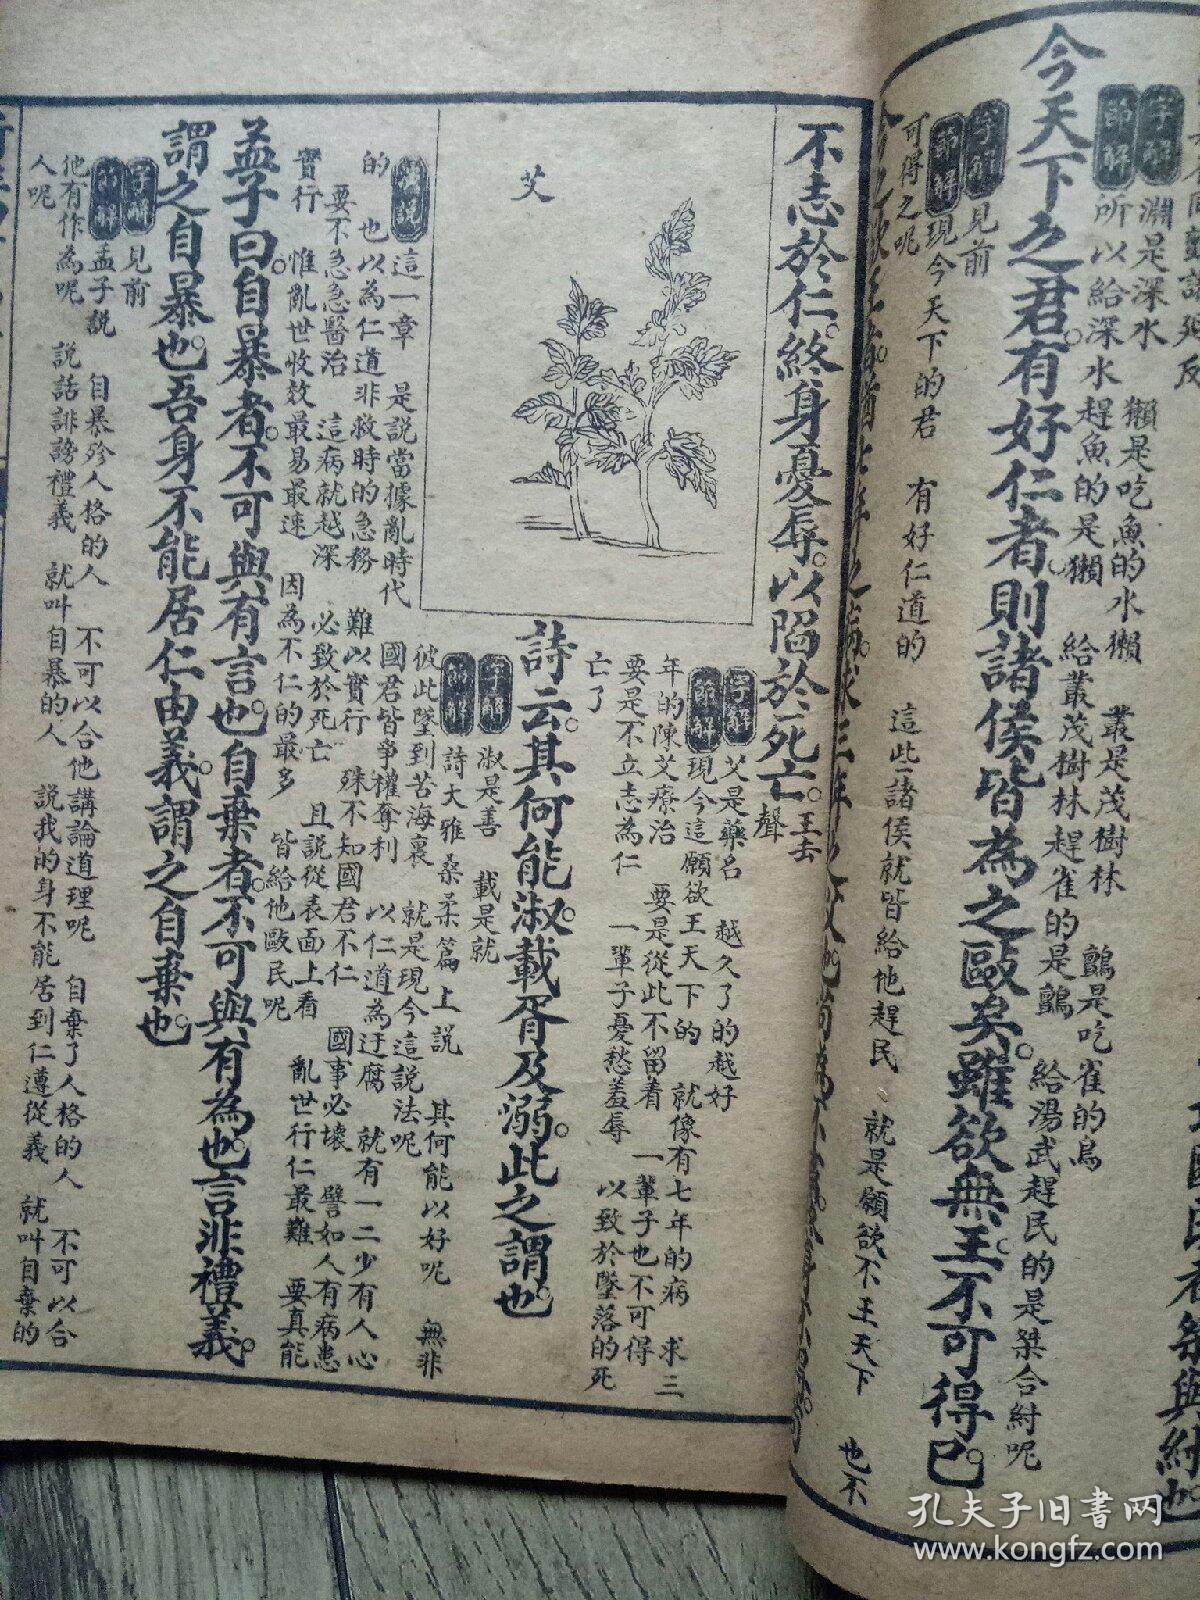 字解 淵是深水 獺是吃魚的水獺 叢是茂樹林 鸇是吃雀的鳥
節解 所以給深水趕魚的是獺 給叢茂樹林趕雀的是鸇 給湯武趕民的是桀合紂呢
今天下之君。有好仁者。則諸侯皆為之敺矣。雖欲無王。不可得已。
字解 見前
節解 現今天下的君 有好仁道的 這些諸侯就皆給他趕民 就是願欲不王天下 也不
可得之呢
不志於仁。終身憂辱。以陷於死亡。王去聲
字解 艾是藥名 越久了的越好
節解 現今這願欲王天下的 就像有七年的病 求三
年的陳艾療治 要是從此不留着 一輩子也不可得
要是不立志為仁 一輩子憂愁羞辱 以致於墜落的死
亡了
艾
詩云。其何能淑。載胥及溺。此之謂也。
字解 淑是善 載是就
節解 詩大雅桑柔篇上說 其何能以好呢 無非
彼此墜到苦海裏 就是現今這說法呢
演說 這一章 是說當據亂時代 國君皆爭權奪利 以仁道為迂腐 就有一二少有人心
的 也以為仁道非救時的急務 難以實行 殊不知國君不仁 國事必壞 譬如人有病患
要不急急醫治 這病就越深 必致於死亡 且說從表面上看 亂世行仁最難 要真能
實行 惟亂世收效最易最速 因為不仁的最多 皆給他敺民呢
孟子曰。自暴者。不可與有言也。自棄者。不可與有為也。言非禮義。
謂之自暴也。吾身不能居仁由義。謂之自棄也。
字解 見前
節解 孟子說 自暴殄人格的人 不可以合他講論道理呢 自棄了人格的人 不可以合
他有作為呢 說話誹謗禮義 就叫自暴的人 說我的身不能居到仁遵從義 就叫自棄的
人呢
孔夫子旧书网
www.kongfz.com